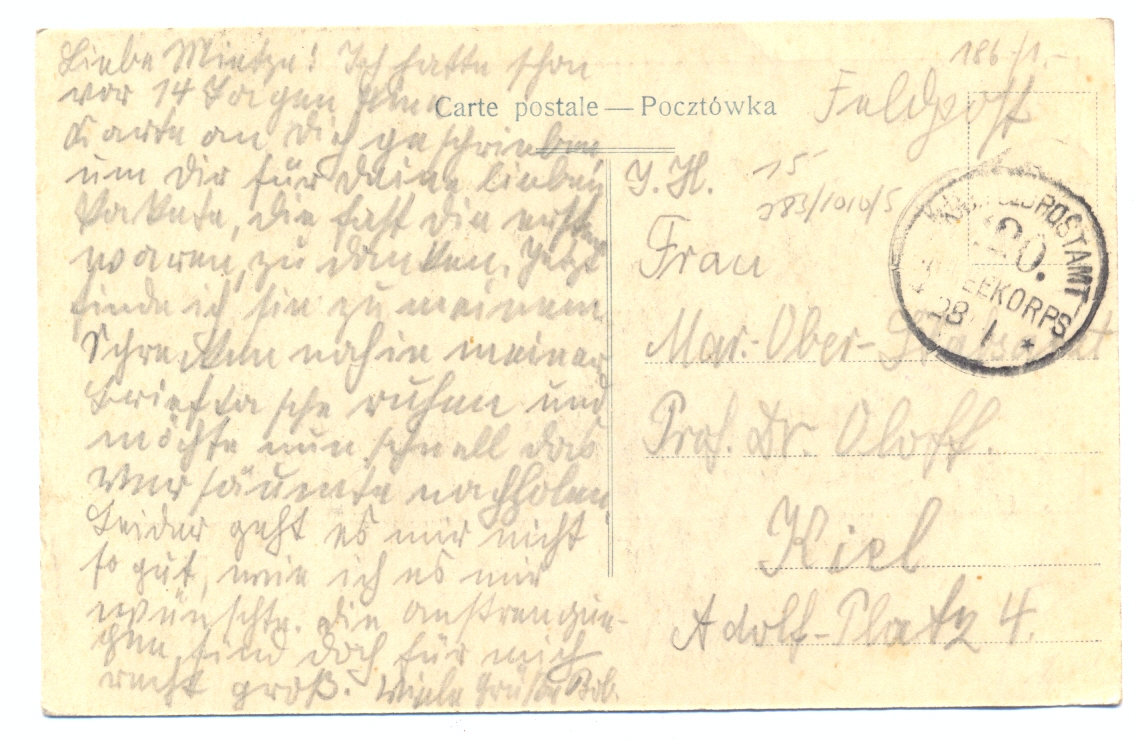 Liebe Mietze! Ich hatte schon
vor 14 Tagen eine
Karte an Dich geschrieben,
um Dir für Deine lieben
Pakete, die fast die ersten
waren, zu danken. Jetzt
finde ich sie zu meinem
Schrecken noch in meiner
Brieftasche ruhen und
möchte nun schnell das
Versäumte nachholen.
Leider geht es mir nicht
so gut, wie ich es mir
wünschte. Die Anstrengun-
gen sind doch für mich
recht groß. Viele Grüße
Carte postale — Pocztówka
186-/1.-
Feldpost
15
283/1010/5
Frau
Mar.-Ober-Stabsarzt
Prof. Dr. Oloff.
Kiel
Adolf-Platz 4.
FELDPOSTAMT
20.
ARMEEKORPS
28 1